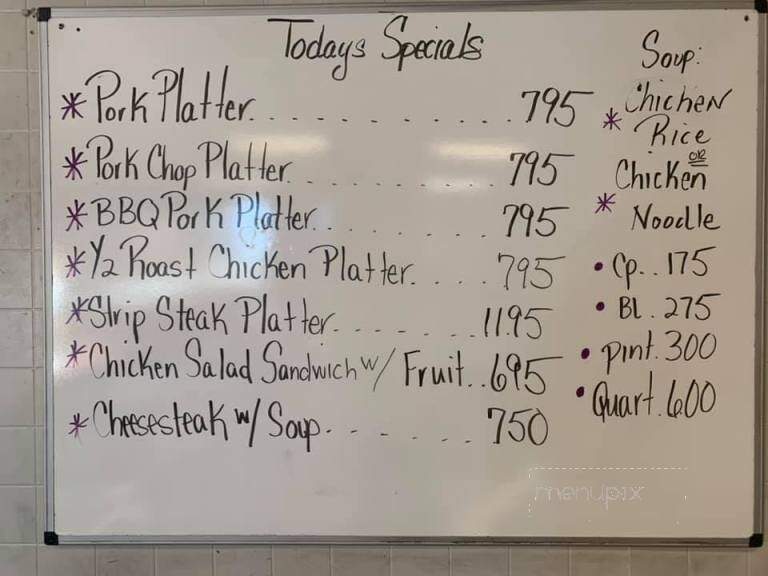 Todays Specials
* Pork Platter. . . . . . . . . . . . 795
* Pork Chop Platter. . . . . . . . . . 795
* BBQ Pork Platter. . . . . . . . 795
* 1/2 Roast Chicken Platter. . . . . 795
* Strip Steak Platter. . . . . . . 1195
* Chicken Salad Sandwich w/ Fruit. . 695
* Cheesesteak w/ Soup. . . . . . . 750
Soup:
Chicken
* Rice
or
Chicken
* Noodle
• Cp. . 175
• Bl . 275
• pint. 300
• Quart. 600
menupix